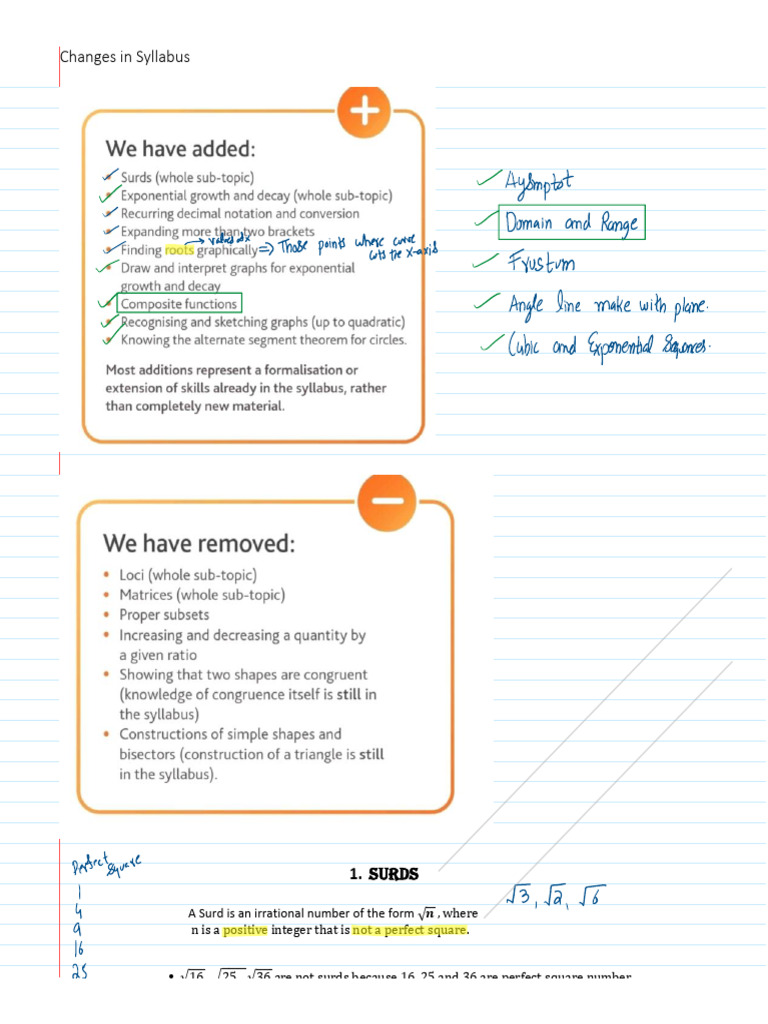 Changes in Syllabus
We have added:
Surds (whole sub-topic)
Exponential growth and decay (whole sub-topic)
Recurring decimal notation and conversion
Expanding more than two brackets
Finding roots graphically
→ values of x
⇒ Those points where curve
cuts the x-axis
Draw and interpret graphs for exponential
growth and decay
Composite functions
Recognising and sketching graphs (up to quadratic)
Knowing the alternate segment theorem for circles.
Most additions represent a formalisation or
extension of skills already in the syllabus, rather
than completely new material.
Aysmptot
Domain and Range
Frustum
Angle line make with plane.
Cubic and Exponential Sequences.
We have removed:
• Loci (whole sub-topic)
• Matrices (whole sub-topic)
• Proper subsets
• Increasing and decreasing a quantity by
a given ratio
• Showing that two shapes are congruent
(knowledge of congruence itself is still in
the syllabus)
• Constructions of simple shapes and
bisectors (construction of a triangle is still
in the syllabus).
Perfect
Square
1
4
9
16
25
1. SURDS
√3, √2, √6
A Surd is an irrational number of the form √n , where
n is a positive integer that is not a perfect square.
• √16, √25, √36 are not surds because 16, 25 and 36 are perfect square number